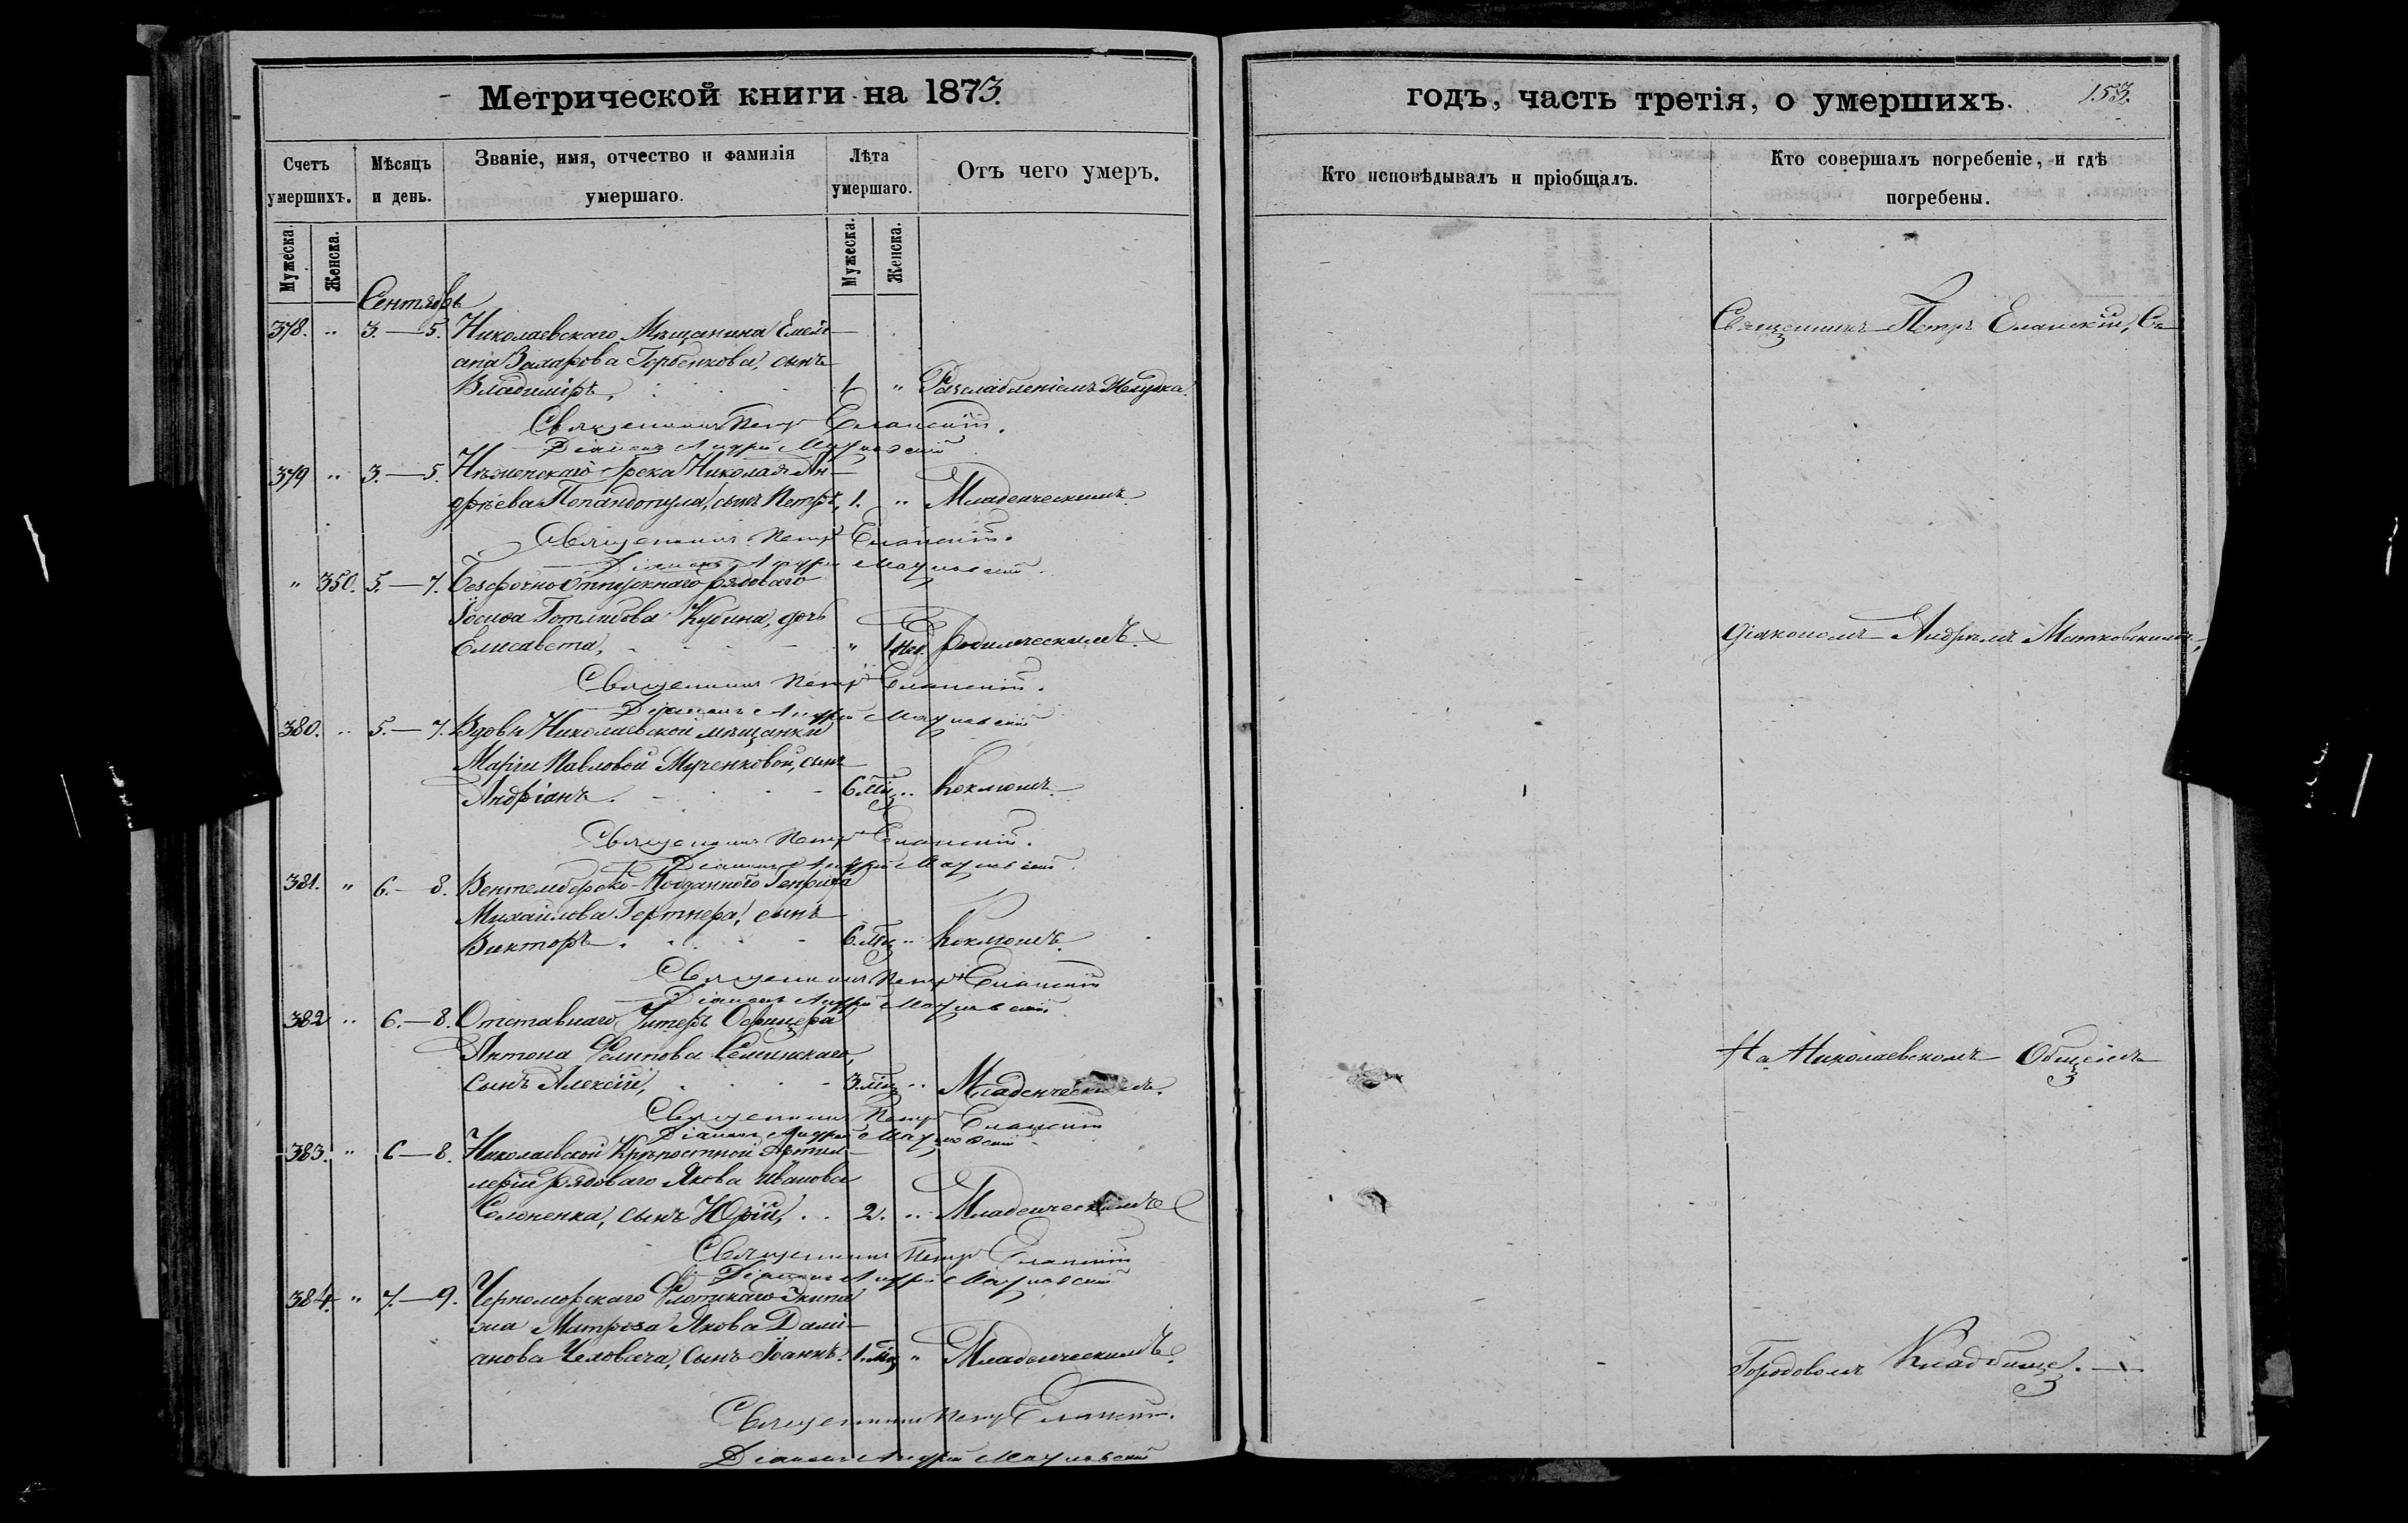 Метрической книги на 1873.
Счетъ умершихъ.
Мѣсяцъ и день.
Званіе, имя, отчество и фамилія умершаго.
Лѣта умершаго.
Отъ чего умеръ.
Мужеска.
Женска.
Мужеска.
Женска.
Сентябрь
378. " 3.—5. Николаевскаго Мѣщанина Емель-
яна Захарова Горбенкова, сынъ
Владиміръ, 1 " Разслабленіемъ Желудка.
Священникъ Петръ Еланскій.
Діаконъ Андрей
379 " 3.—5. Нѣжинскаго Грека Николая Ан-
дрѣева Попандопула, сынъ Петръ, 1. " Младенческимъ
Священникъ Петръ Еланскій.
Діаконъ Андрей
" 350. 5.—7. Безсрочноотпускнаго рядоваго
Іосифа Готлибова Кубина, дочь
Елисавета, " 1 нед. Родимческимъ.
Священникъ Петръ Еланскій.
Діаконъ Андрей
380. " 5.—7. Вдовы Николаевской мѣщанки
Маріи Павловой Мученковой, сынъ
Андріанъ. 6 мц. " Коклюшъ.
Священникъ Петръ Еланскій.
Діаконъ Андрей
381. " 6.—8. Подданного Генриха
Михаилова Гертнера, сынъ
Викторъ. 6. мц " Коклюшъ.
Священникъ Петръ Еланскій
Діаконъ Андрей
382 " 6.—8. Отставнаго Унтеръ Офицера
Антона Филипова
сынъ Алексій, 3. мц " Младенческимъ.
Священникъ Петръ Еланскій
Діаконъ Андрей
383. " 6—8. Николаевской Крѣпостной Артил-
леріи рядоваго Якова Иванова
Солоненка, сынъ Юрій, 2. " Младенческимъ
Священникъ Петръ Еланскій
Діаконъ Андрей
384. " 7.—9. Черноморскаго Флотскаго Экипа
жа Матроза Якова Даміанова
Чемовача, Сынъ Іоаннъ. 1. мц " Младенческимъ.
Священникъ Петръ Еланскій.
Діаконъ Андрей
годъ, часть третія, о умершихъ.
153.
Кто исповѣдывалъ и пріобщалъ.
Кто совершалъ погребеніе, и гдѣ погребены.
Священникъ Петръ Еланскій, Съ
діакономъ Андреемъ
На Николаевскомъ Общемъ
Городовомъ Кладбище.